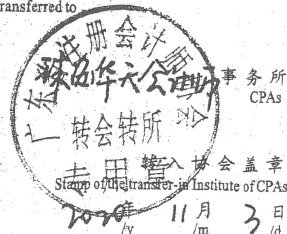 transferred to
广东省注册会计师协会
华天会 事务所
CPAs
转会转所
专用章
转入协会盖章
Stamp of the transfer-in Institute of CPAs
2020年 11月 3日
/y /m /d